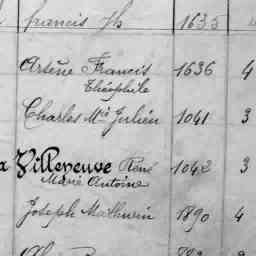 francis Jh 1635
Arsène Francis 1636 4
Théophile
Charles Mie Julien 1041 3
Villeneuve René 1042 3
Marie Antoine
Joseph Mathurin 1890 4